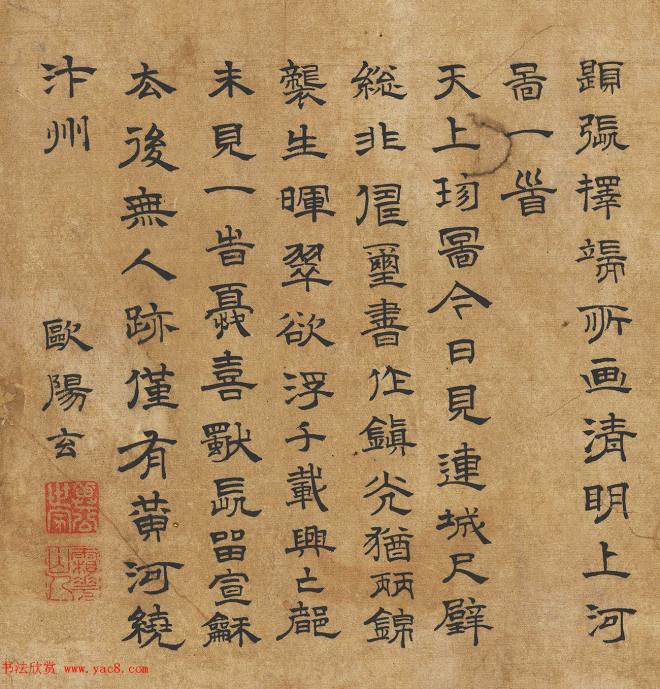 題張擇端所画清明上河
圖一首
天上珎圖今日見連城尺璧
総非儔璽書作鎮光猶炳錦
襲生暉翠欲浮千載興亡都
未見一旹憂喜長畱宣龢
去後無人跡僅有黄河繞
汴州
歐陽玄
书法欣赏 www.yac8.com